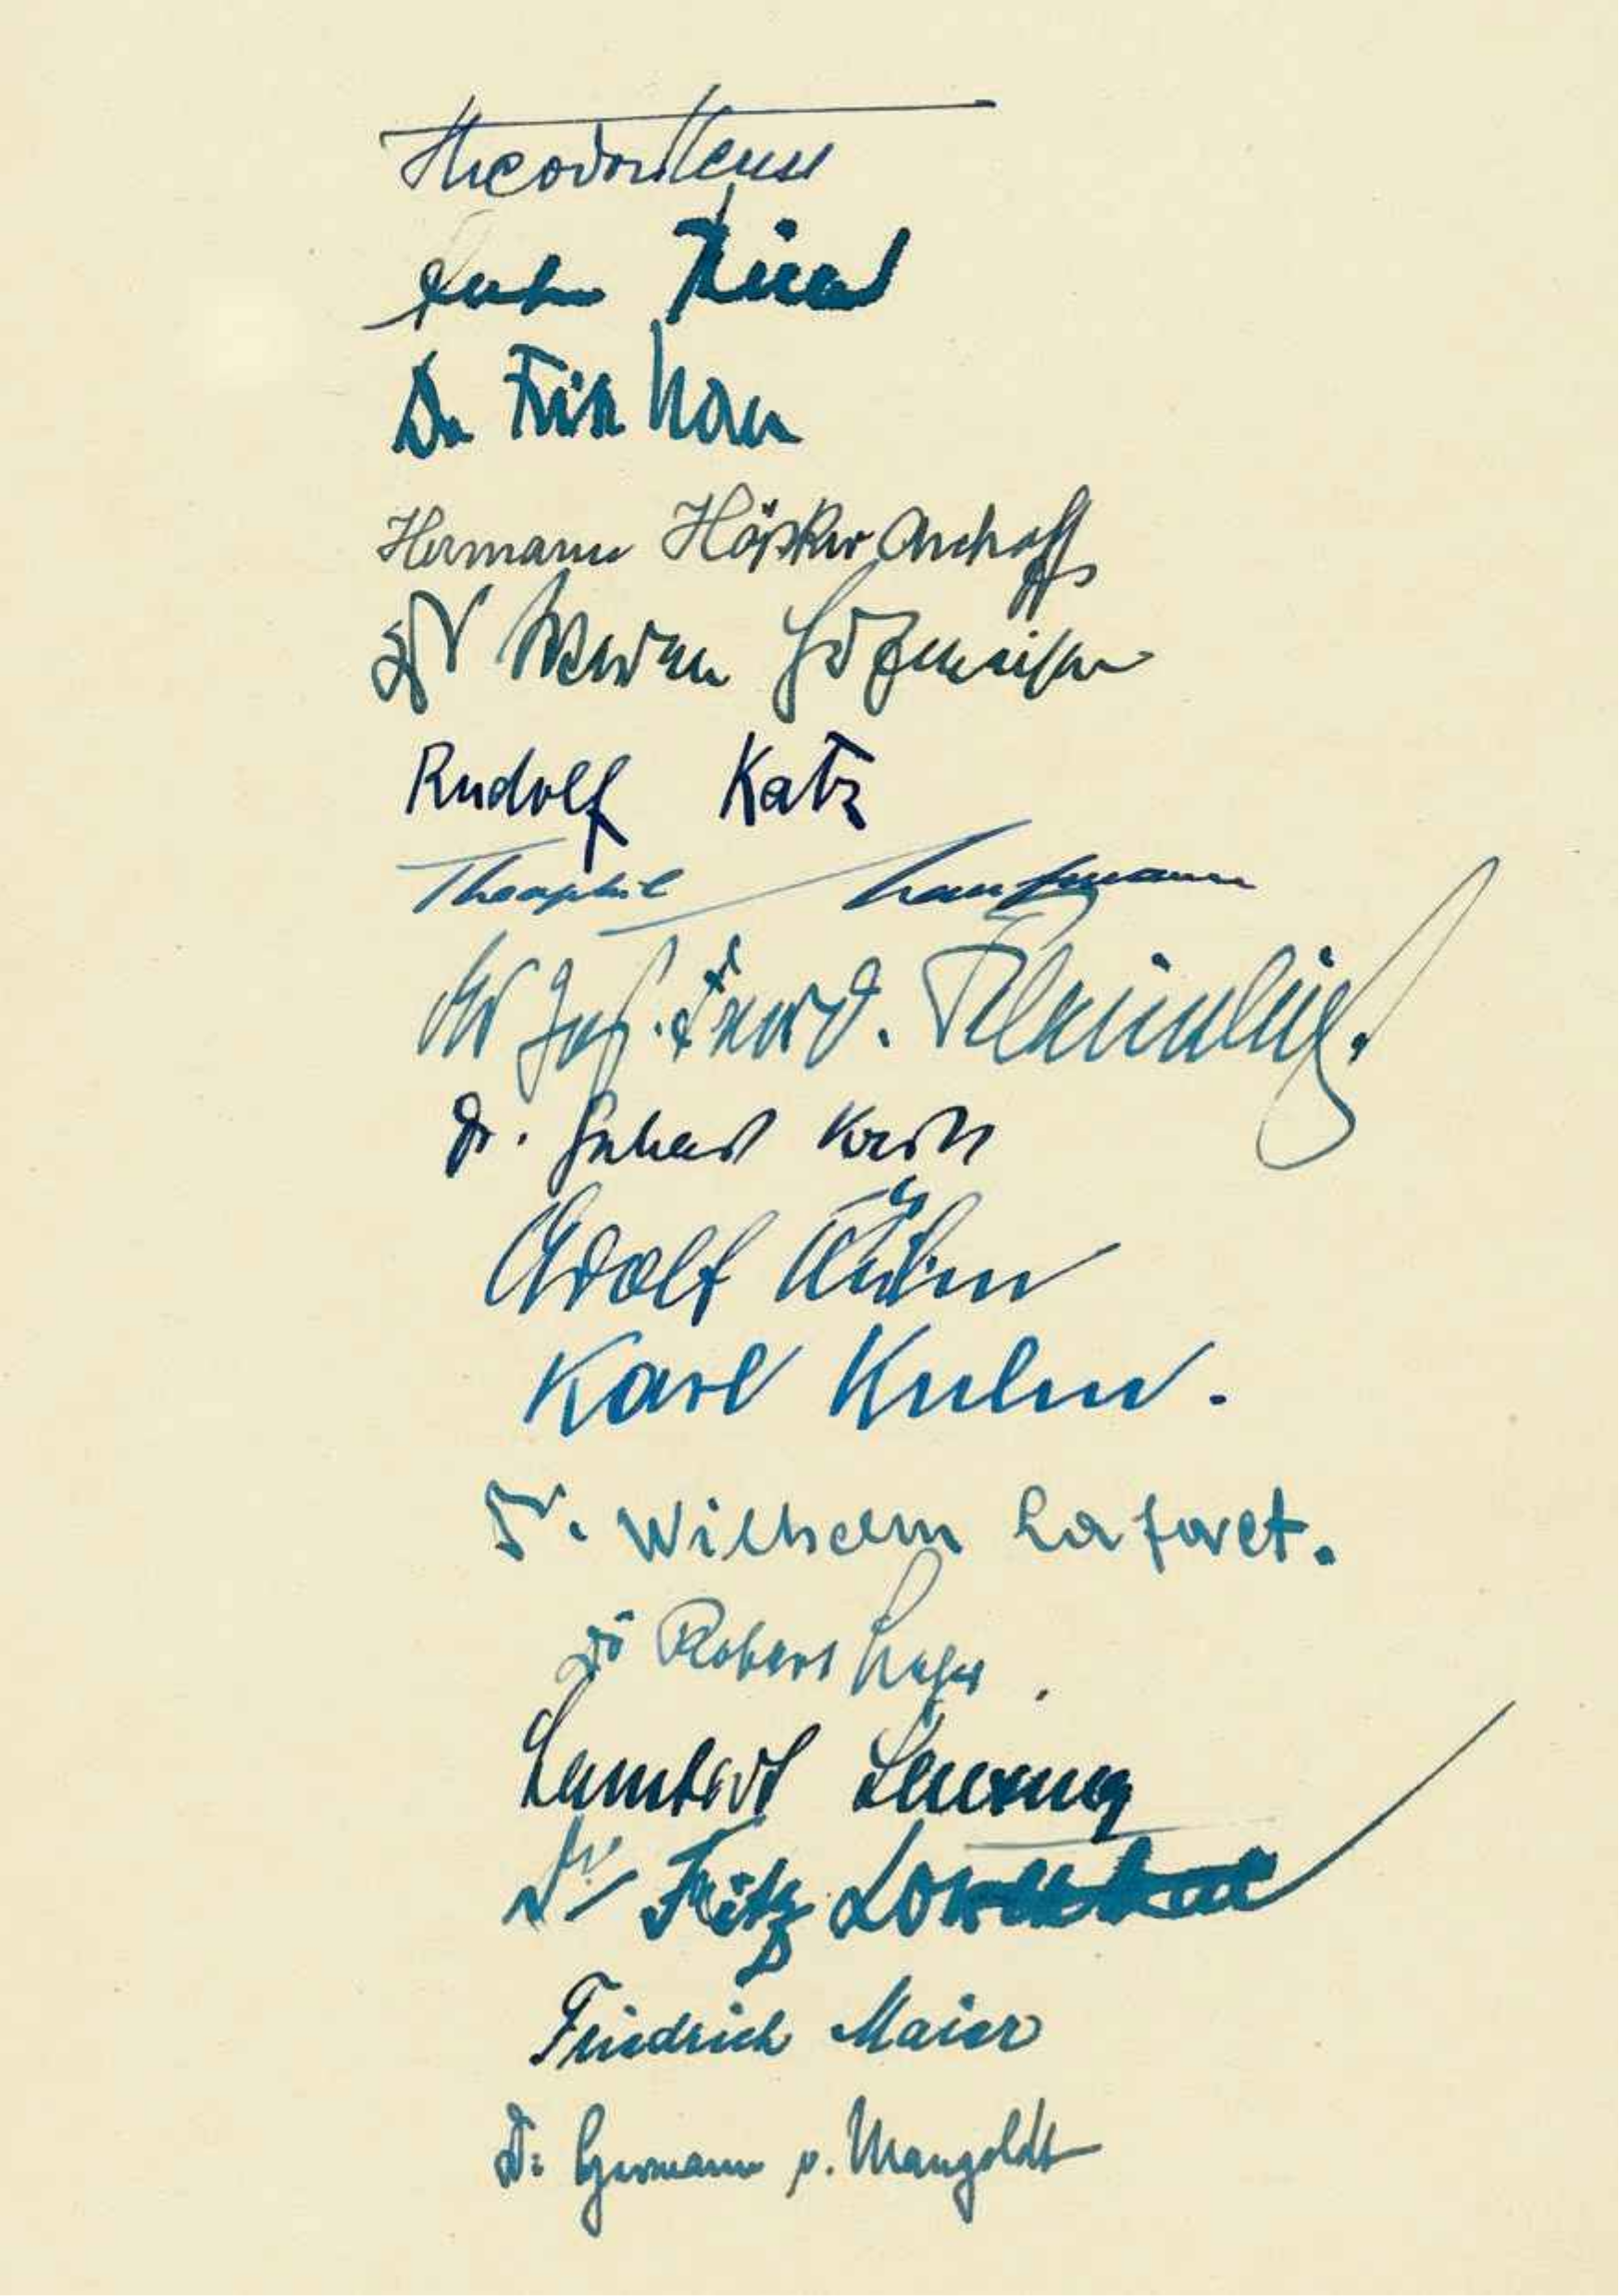 Theodor Heuss
Dr Fritz Hoch
Hermann Höpker Aschoff
Dr Werner Hofmeister
Rudolf Katz
Theophil Kaufmann
Dr Jos. Ferd. Kleindinst.
Dr. Gerhard Kroll
Adolf Kühn
Karl Kuhn.
Dr. Wilhelm Laforet.
Dr Robert Lehr.
Lambert Lensing
Dr Fritz Löwenthal
Friedrich Maier
Dr. Hermann v. Mangoldt